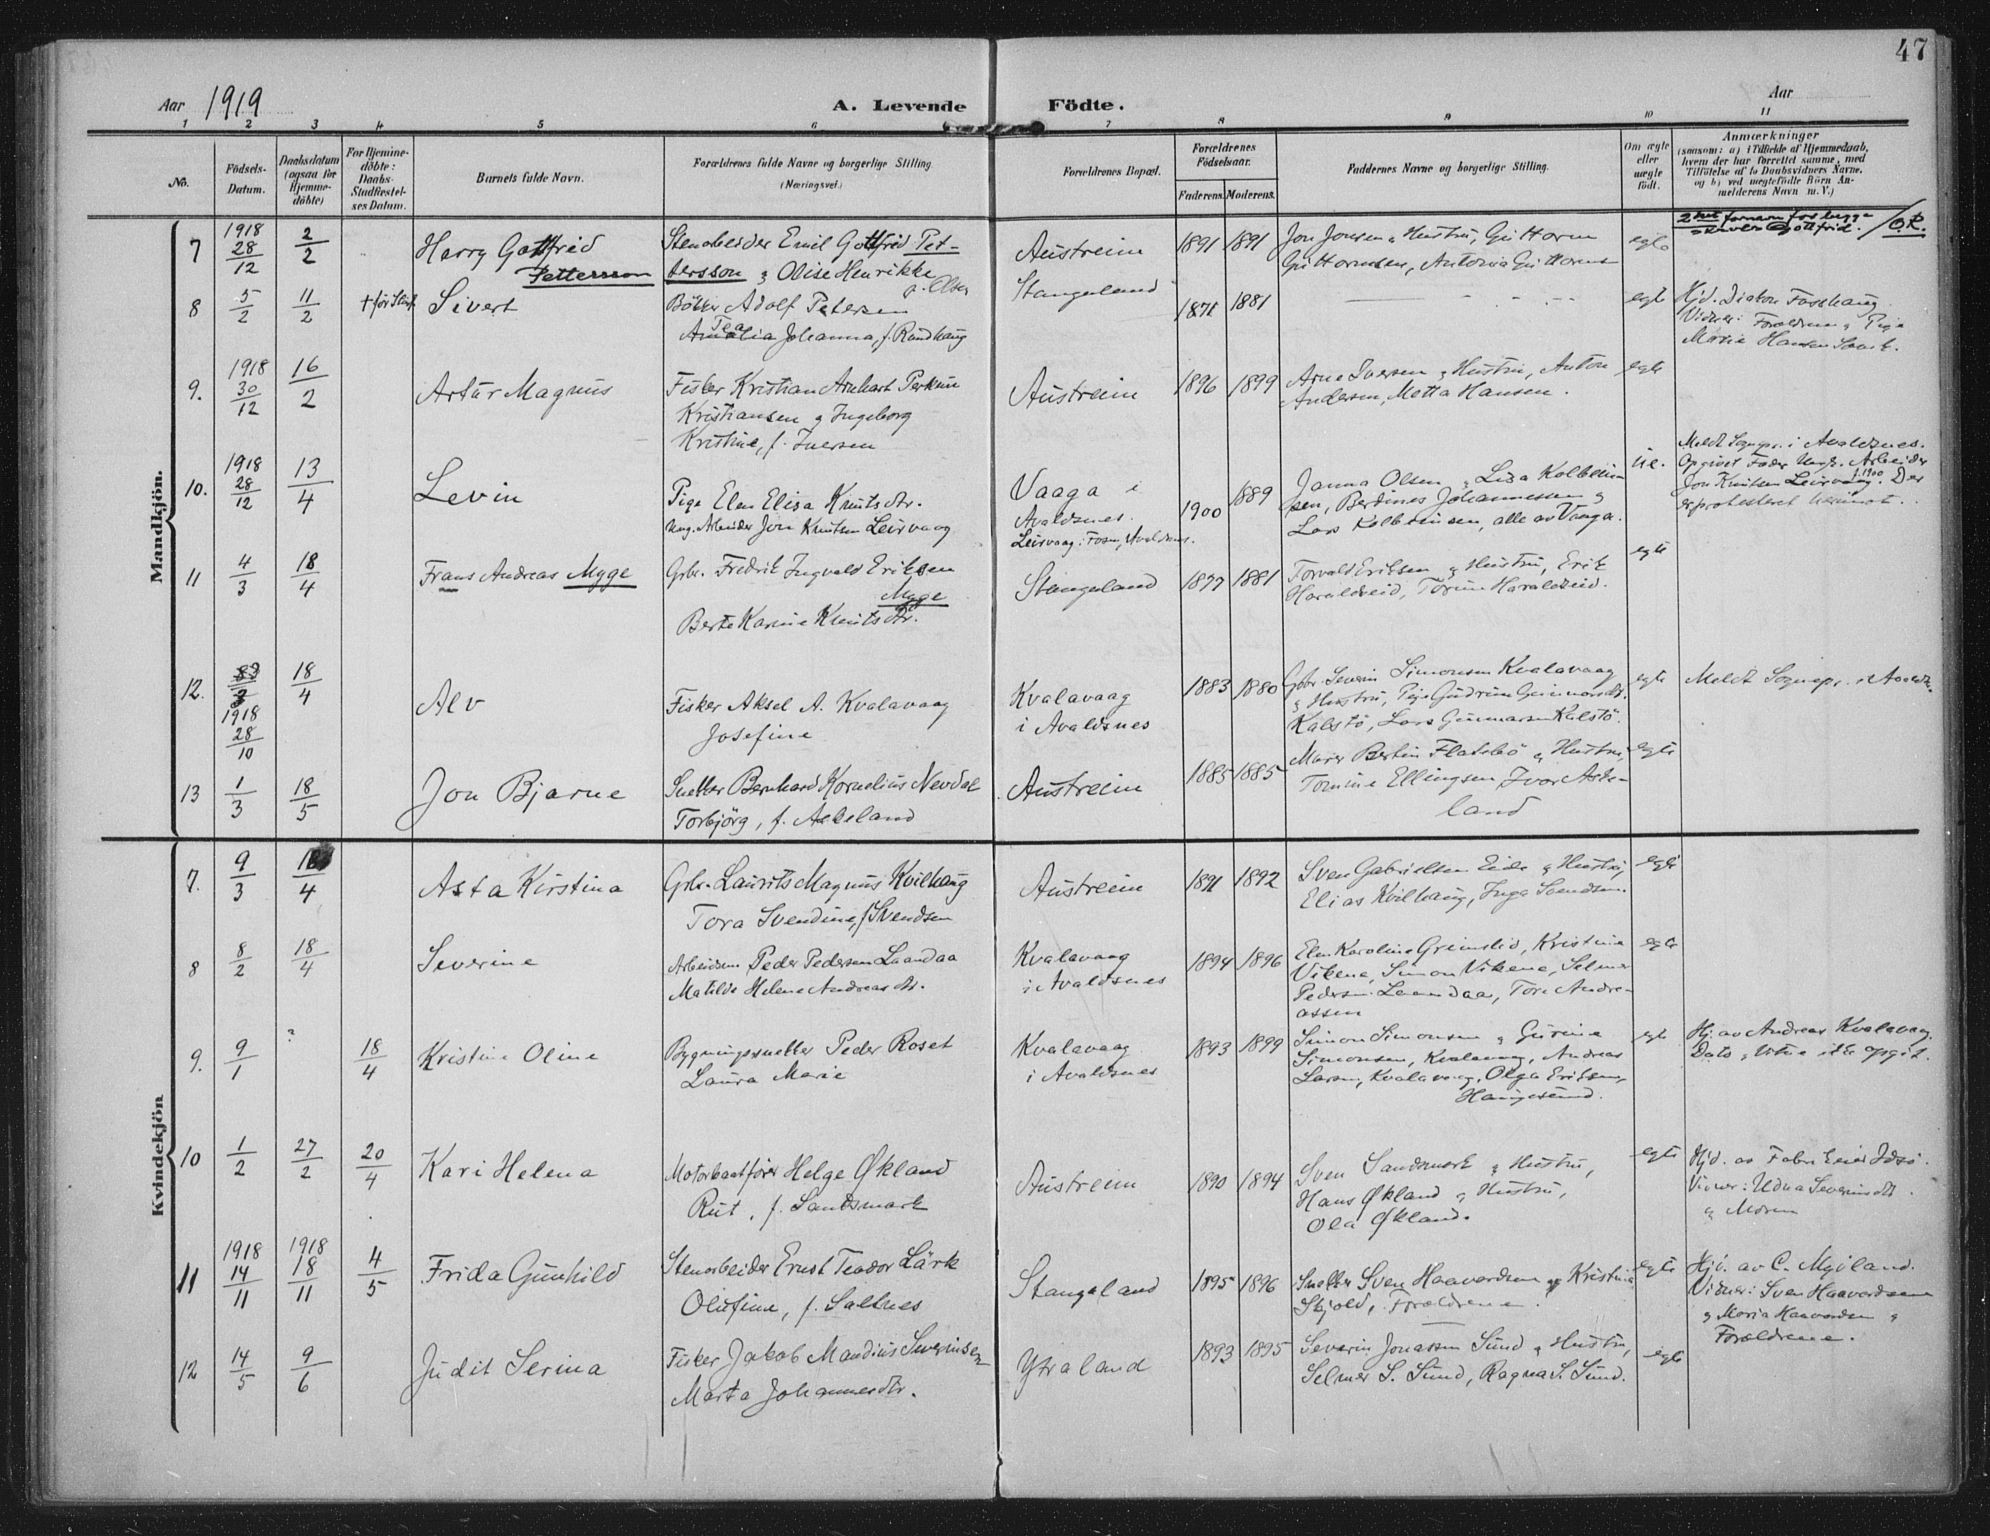 47
Aar 1919
A. Levende Födte.
Aar
1 2 3 4 5 6 7 8 9 10 11
No.
Födsels-Datum.
Daabsdatum (ogsaa for Hjemme-döbte)
For Hjemme-döbte: Daabs-Stadfæstel-ses Datum.
Barnets fulde Navn.
Forældrenes fulde Navne og borgerlige Stilling. (Næringsvei.)
Forældrenes Bopæl.
Forældrenes Födselsaar.
Faderens. Moderens.
Faddernes Navne og borgerlige Stilling.
Om ægte eller uægte födt.
Anmærkninger
(saasom: a) i Tilfælde af Hjemmedaab,
hvem der har forrettet samme, med
Tilföielse af to Daabsvidners Navne,
og b) ved uægtefödte Börn An-
melderens Navn m. V.)
Mandkjön.
7 1918 28/12 2/2 Harry Gottfried Pettersson
Stenarbeider Emil Gottfried Pet-
tersson & Olise Henrikke f. Olsen
Austreim 1891 1891
Jon Jonsen & Hustru, Guttorm
Guttormsen, Antonia Guttorms
egte
2det fornavn for begge
skrives Gottfrid. / O.R.
8 5/2 11/2 † før Stadf Sivert
Bøkker Adolf Petersen
Amalia Tea Johanna, f. Rundhaug
Stangeland 1871 1881
egte
Hjd. Diakon Fosshaug
Vidner: Forældrene & Pige
Marie Hansen
9. 1918 30/12 16/2 Artur Magnus
Fisker Kristian Arnhart Perkun
Kristiansen & Ingeborg
Kristine, f. Iversen
Austreim 1896 1899
Arne Iversen & Hustru, Anton
Andersen, Metta Hansen.
egte
10. 1918 28/12 13/4 Levin
Pige Elen Elisa Knutsdtr.
Ung. Arbeider Jon Knutsen Leirvaag
Vaaga i
Avaldsnes.
Leirvaag i Fosen, Avaldsnes.
1900 1889
Janna Olsen & Lisa Kolbein-
sen, Berdines Johannessen &
Lars Kolbeinsen, alle av Vaaga.
ue.
Meldt Sognepr. i Avaldsnes.
Opgivet Fader Ungk. Arbeider
Jon Knutsen Leirvaag f. 1900. Der
er protesteret herimot.
11 4/3 18/4 Frans Andreas Myge
Grbr. Fredrik Ingvald Eriksen
Myge
Berte Karine Knutsdtr.
Stangeland 1877 1881
Torvald Eriksen & Hustru, Erik
Haraldseid, Torine Haraldseid.
egte
12. 1918 28/10 18/4 Alv
Fisker Aksel A. Kvalavaag
Josefine
Kvalavaag
i Avaldsnes
1883 1880
Gbr. Severin Simonsen Kvalavaag
& Hustru, Pige Gudrun Gunnarsdt.
Kalstø, Lars Gunnarsen Kalstø.
egte
Meldt Sognepr. i Avaldsn.
13 1/3 18/5 Jon Bjarne
Snekker Bernhard Kornelius Nevdal
Torbjörg, f. Askeland
Austreim 1885 1885
Murer Bertin Flatebø & Hustru,
Tomine Ellingsen, Ivar Aske-
land
egte
Kvindekjön
7. 9/3 18/4 Asta Kirstina
Grbr. Laurits Magnus Kvilhaug
Tora Svendine, f. Svendsen
Austreim 1891 1892
Sven Gabrielsen Eide & Hustru,
Elias Kvilhaug, Inga Svendsen
egte
8 8/2 18/4 Severine
Arbeidsm Peder Pedersen Laandaa
Matilde Helene Andreasdtr.
Kvalavaag
i Avaldsnes
1894 1896
Elen Karoline Grimslid, Kristine
Vikene, Simon Vikene, Selmer
Pedersen Laandaa, Tore Andre-
assen
egte
9. 9/1 ? 18/4 Kristine Oline
Bygningssnekker Peder Roset
Laura Marie
Kvalavaag
i Avaldsnes
1893 1899
Simon Simonsen & Gurine
Simonsen, Kvalavaag, Andreas
Larsen, Kvalavaag, Olga Eriksen,
Haugesund.
egte
Hj. av Andreas Kvalavaag
Dato & Vitne ikke opgit.
10 1/2 27/2 20/4 Kari Helena
Motorbaatfører Helge Økland
Rut, f. Sandsmark
Austreim 1890 1894
Sven Sandsmark & Hustru,
Hans Økland & Hustru,
Ola Økland.
egte
Hjd. av Fabr. Eier Idsø.
Vidner: Udna Severinsdt.
& Moren
11 1918 14/11 1918 18/11 4/5 Frida Gunhild
Stenarbeider Ernst Teodor Lärk
Olufine, f. Saltnes
Stangaland 1895 1896
Snekker Sven Haavardsen & Kristine
Skjold, Forældrene.
egte
Hjd. av C. Mjøland.
Vidner: Sven Haavardsen
& Maria Haavardsen &
Forældrene.
12 14/5 9/6 Judit Serina
Fisker Jakob Mandius Severinsen
Marta Johannesdtr.
Ytraland 1893 1895
Severin Jonassen Sund & Hustru,
Selmer S. Sund, Ragna S. Sund.
egte